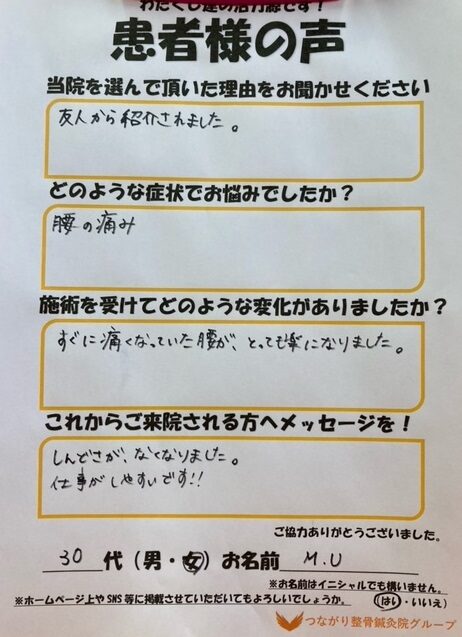 わたくし達の活力源です！
患者様の声
当院を選んで頂いた理由をお聞かせください
友人から紹介されました。
どのような症状でお悩みでしたか？
腰の痛み
施術を受けてどのような変化がありましたか？
すぐに痛くなっていた腰が、とっても楽になりました。
これからご来院される方へメッセージを！
しんどさが、なくなりました。
仕事がしやすいです!!
ご協力ありがとうございました。
30 代（男・女）お名前 M.U
※お名前はイニシャルでも構いません。
※ホームページ上やSNS等に掲載させていただいてもよろしいでしょうか。（はい・いいえ）
つながり整骨鍼灸院グループ